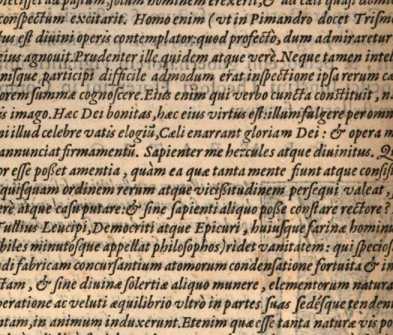 pecisset ad pastum, solum hominem erexerit, & ad cæli quasi domi
conspectum excitarit. Homo enim (vt in Pimandro docet Trism
tus est diuini operis contemplator: quod profectò, dum admiraretur
eius agnouit. Prudenter ille quidem atque verè. Neque tamen intel
nisque participi difficile admodum erat inspectione ipsa rerum ca
orem summæ cognoscere. Eius enim qui verbo cuncta constituit, n
is imago. Hæc Dei bonitas, hæc eius virtus est: illum fulgere per omn
ni illud celebre vatis elogiũ, Cæli enarrant gloriam Dei: & opera m
annunciat firmamentũ. Sapienter me hercules atque diuinitus. Q
or esse poßet amentia, quàm ea quæ tanta mente fiunt atque consis
quisquam ordinem rerum atque vicißitudinem persequi valeat,
erè atque casu putare: & sine sapienti aliquo poße constare rectore?
Tullius Leucipi, Democriti atque Epicuri, huiusque farinæ hominu
biles minutosque appellat philosophos) ridet vanitatem: qui specios
di fabricam concursantium atomorum condensatione fortuita & in
ctam, & sine diuinæ solertiæ aliquo munere, elementorum natura
peratione ac veluti æquilibrio vltrò in partes suas sedésque tenden
tam, in animum induxerunt. Etenim quæ esse tanta naturæ vis po